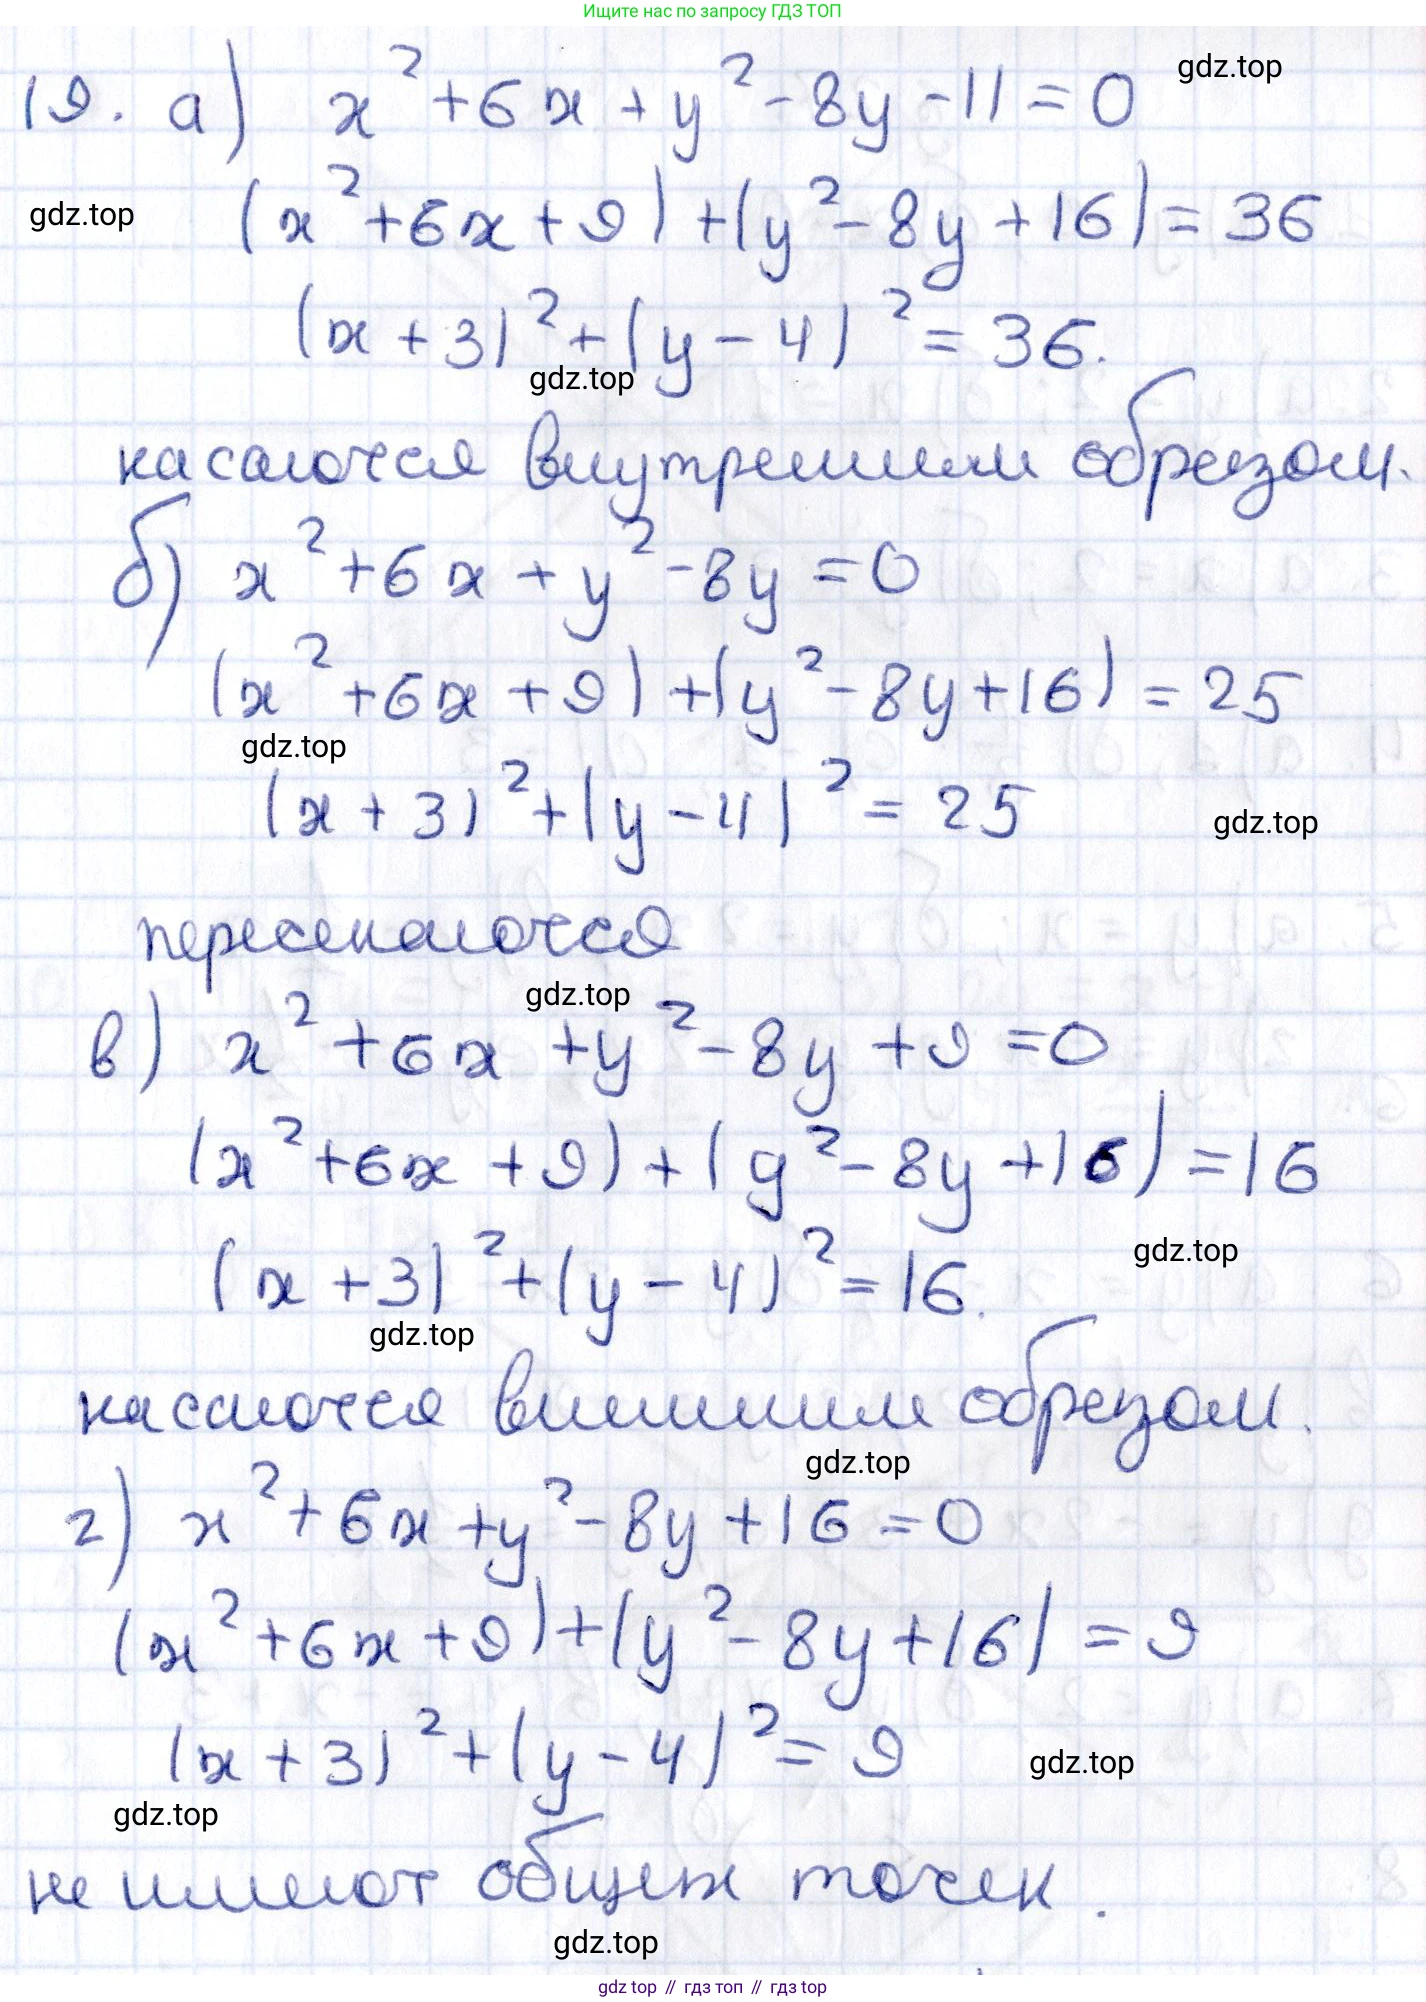 Ищите нас по запросу ГДЗ ТОП
19. а) x² + 6x + y² - 8y - 11 = 0
gdz.top
gdz.top
(x² + 6x + 9) + (y² - 8y + 16) = 36
(x + 3)² + (y - 4)² = 36.
gdz.top
касаются внутренним образом.
б) x² + 6x + y² - 8y = 0
(x² + 6x + 9) + (y² - 8y + 16) = 25
gdz.top
(x + 3)² + (y - 4)² = 25
gdz.top
пересекаются
gdz.top
в) x² + 6x + y² - 8y + 9 = 0
(x² + 6x + 9) + (y² - 8y + 16) = 16
gdz.top
(x + 3)² + (y - 4)² = 16.
gdz.top
касаются внешним образом.
gdz.top
г) x² + 6x + y² - 8y + 16 = 0
(x² + 6x + 9) + (y² - 8y + 16) = 9
(x + 3)² + (y - 4)² = 9
gdz.top
gdz.top
не имеют общих точек.
gdz.top
gdz top // гдз топ // gdz top